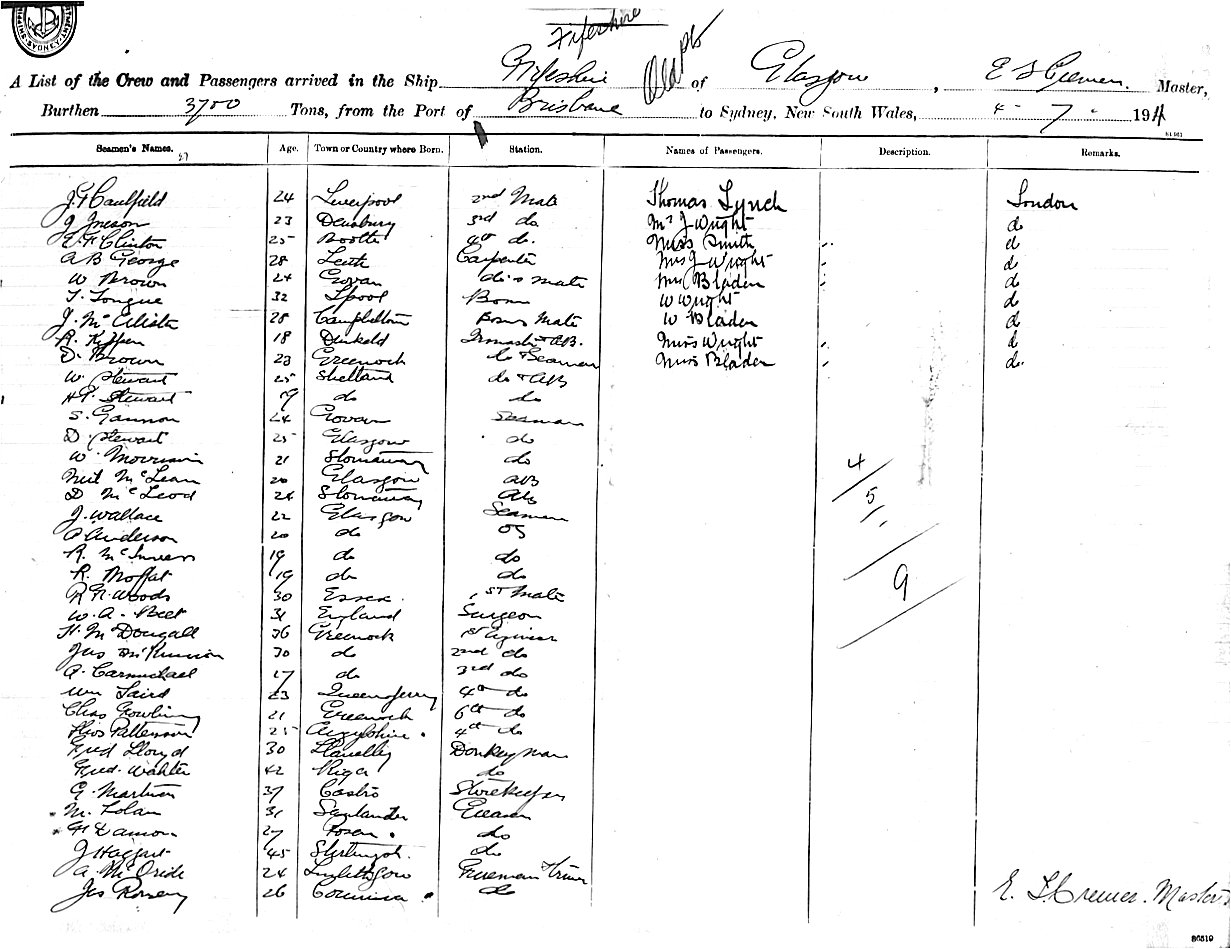 SYDNEY
Fifeshire
A List of the Crew and Passengers arrived in the Ship Fifeshire of Glasgow, E T Cremer. Master,
Burthen 3700 Tons, from the Port of Brisbane to Sydney, New South Wales, 4 - 7 - 1911
84461
Seamen's Names. Age. Town or Country where Born. Station. Names of Passengers. Description. Remarks.
37
J. Caulfield 24 Liverpool 2nd Mate Thomas Lynch London
J Ineson 23 Dewsbury 3rd do Mr J Wright do
E. F. Clinton 25 Bootle 4th do. Miss Smith " d
A B George 28 Leith Carpenter Mrs J Wright " d
W Brown 24 Govan do's mate Mrs Bladen " d
T. Tongue 32 Lpool Bosun W Wright d
J. McAlister 28 Campbeltown Bosuns Mate W Bladen d
A. Kippen 18 Dunkeld & AB. Miss Wright " d
D. Brown 23 Greenock do & Seaman Miss Bladen " do.
W. Stewart 25 Shetland do & AB
H P. Stewart 19 do do
S. Gannon 24 Govan Seaman
D Stewart 25 Glasgow do
W. Morrison 21 Stornoway do
Neil McLean 20 Glasgow AB
D McLeod 24 Stornoway AB
J. Wallace 22 Glasgow Seaman
A Anderson 20 do OS
R. McInnes 19 do do
R. Moffat 19 do do
R N. Woods 30 Essex. 1st Mate
W. A. Peet 31 England Surgeon
H. McDougall 36 Greenock 1st Engineer
Jas McKinnon 30 do 2nd do
A. Carmichael 27 do 3rd do
Wm Laird 23 Queensferry 4th do
Chas Gowling 21 Greenock 6th do
Thos Patterson 25 Argylshire. 4th do
Fred Lloyd 30 Llanelley Donkeyman
Fred. Wahter 42 Riga do
G. Martinez 37 Castro Storekeeper
M. Tolan 31 Greaser
H Damon 27 Posen. do
J Haggart 45 do
A. McBride 24 Linlithgow Fireman & Trimr
Jas 26 do
4
5
9
E. T. Cremer. Master
86519